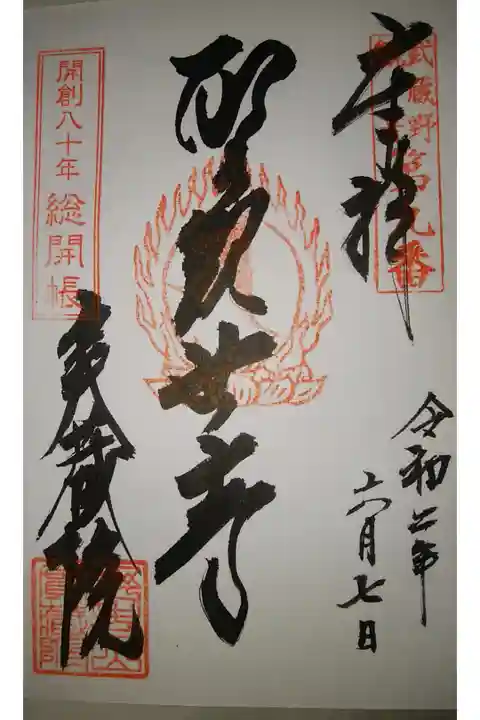 武蔵野第九番
奉拝
令和二年
六月七日
聖観世音
開創八十年 総開帳
実蔵院